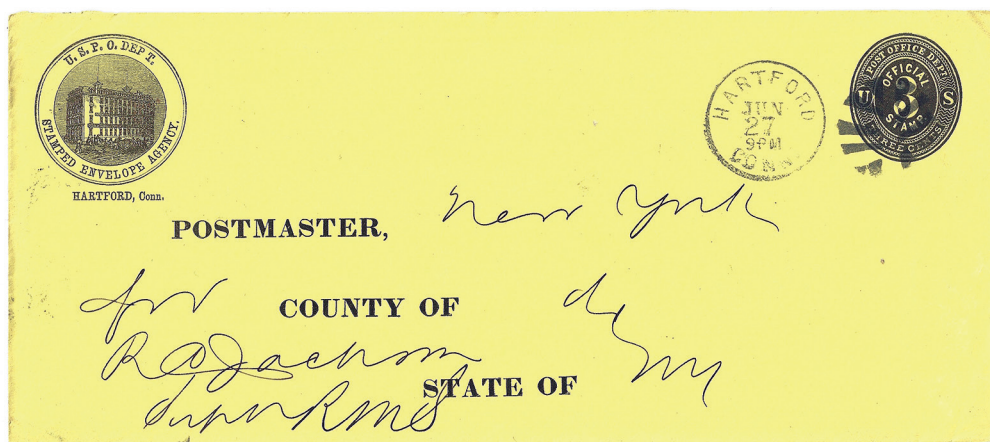 U. S. P. O. DEP'T.
STAMPED ENVELOPE AGENCY.
HARTFORD, Conn.
HARTFORD
JUN
27
9PM
CONN.
POST OFFICE DEPT.
OFFICIAL
U 3 S
STAMP
THREE CENTS
POSTMASTER, New York
for COUNTY OF do
R A Jackson
STATE OF NY
Supt R M S